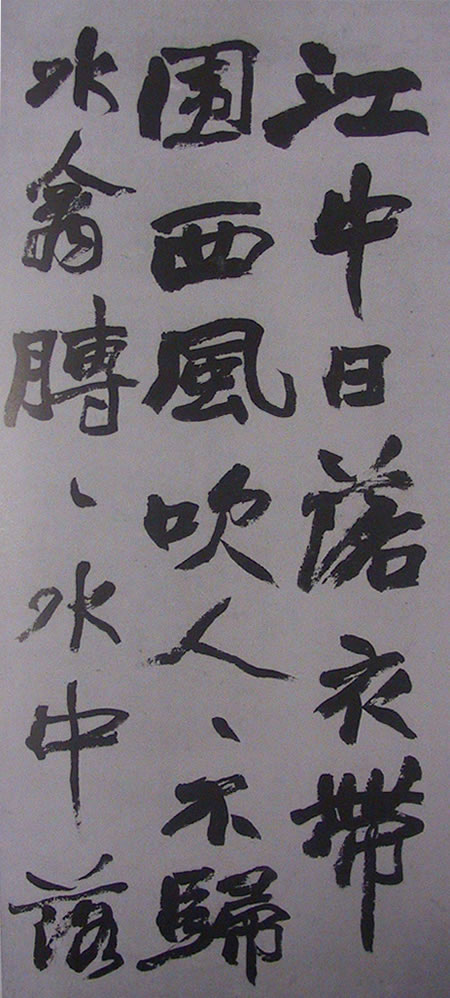 江中日落衣帶
圍西風吹人、不歸
水禽膊、水中落